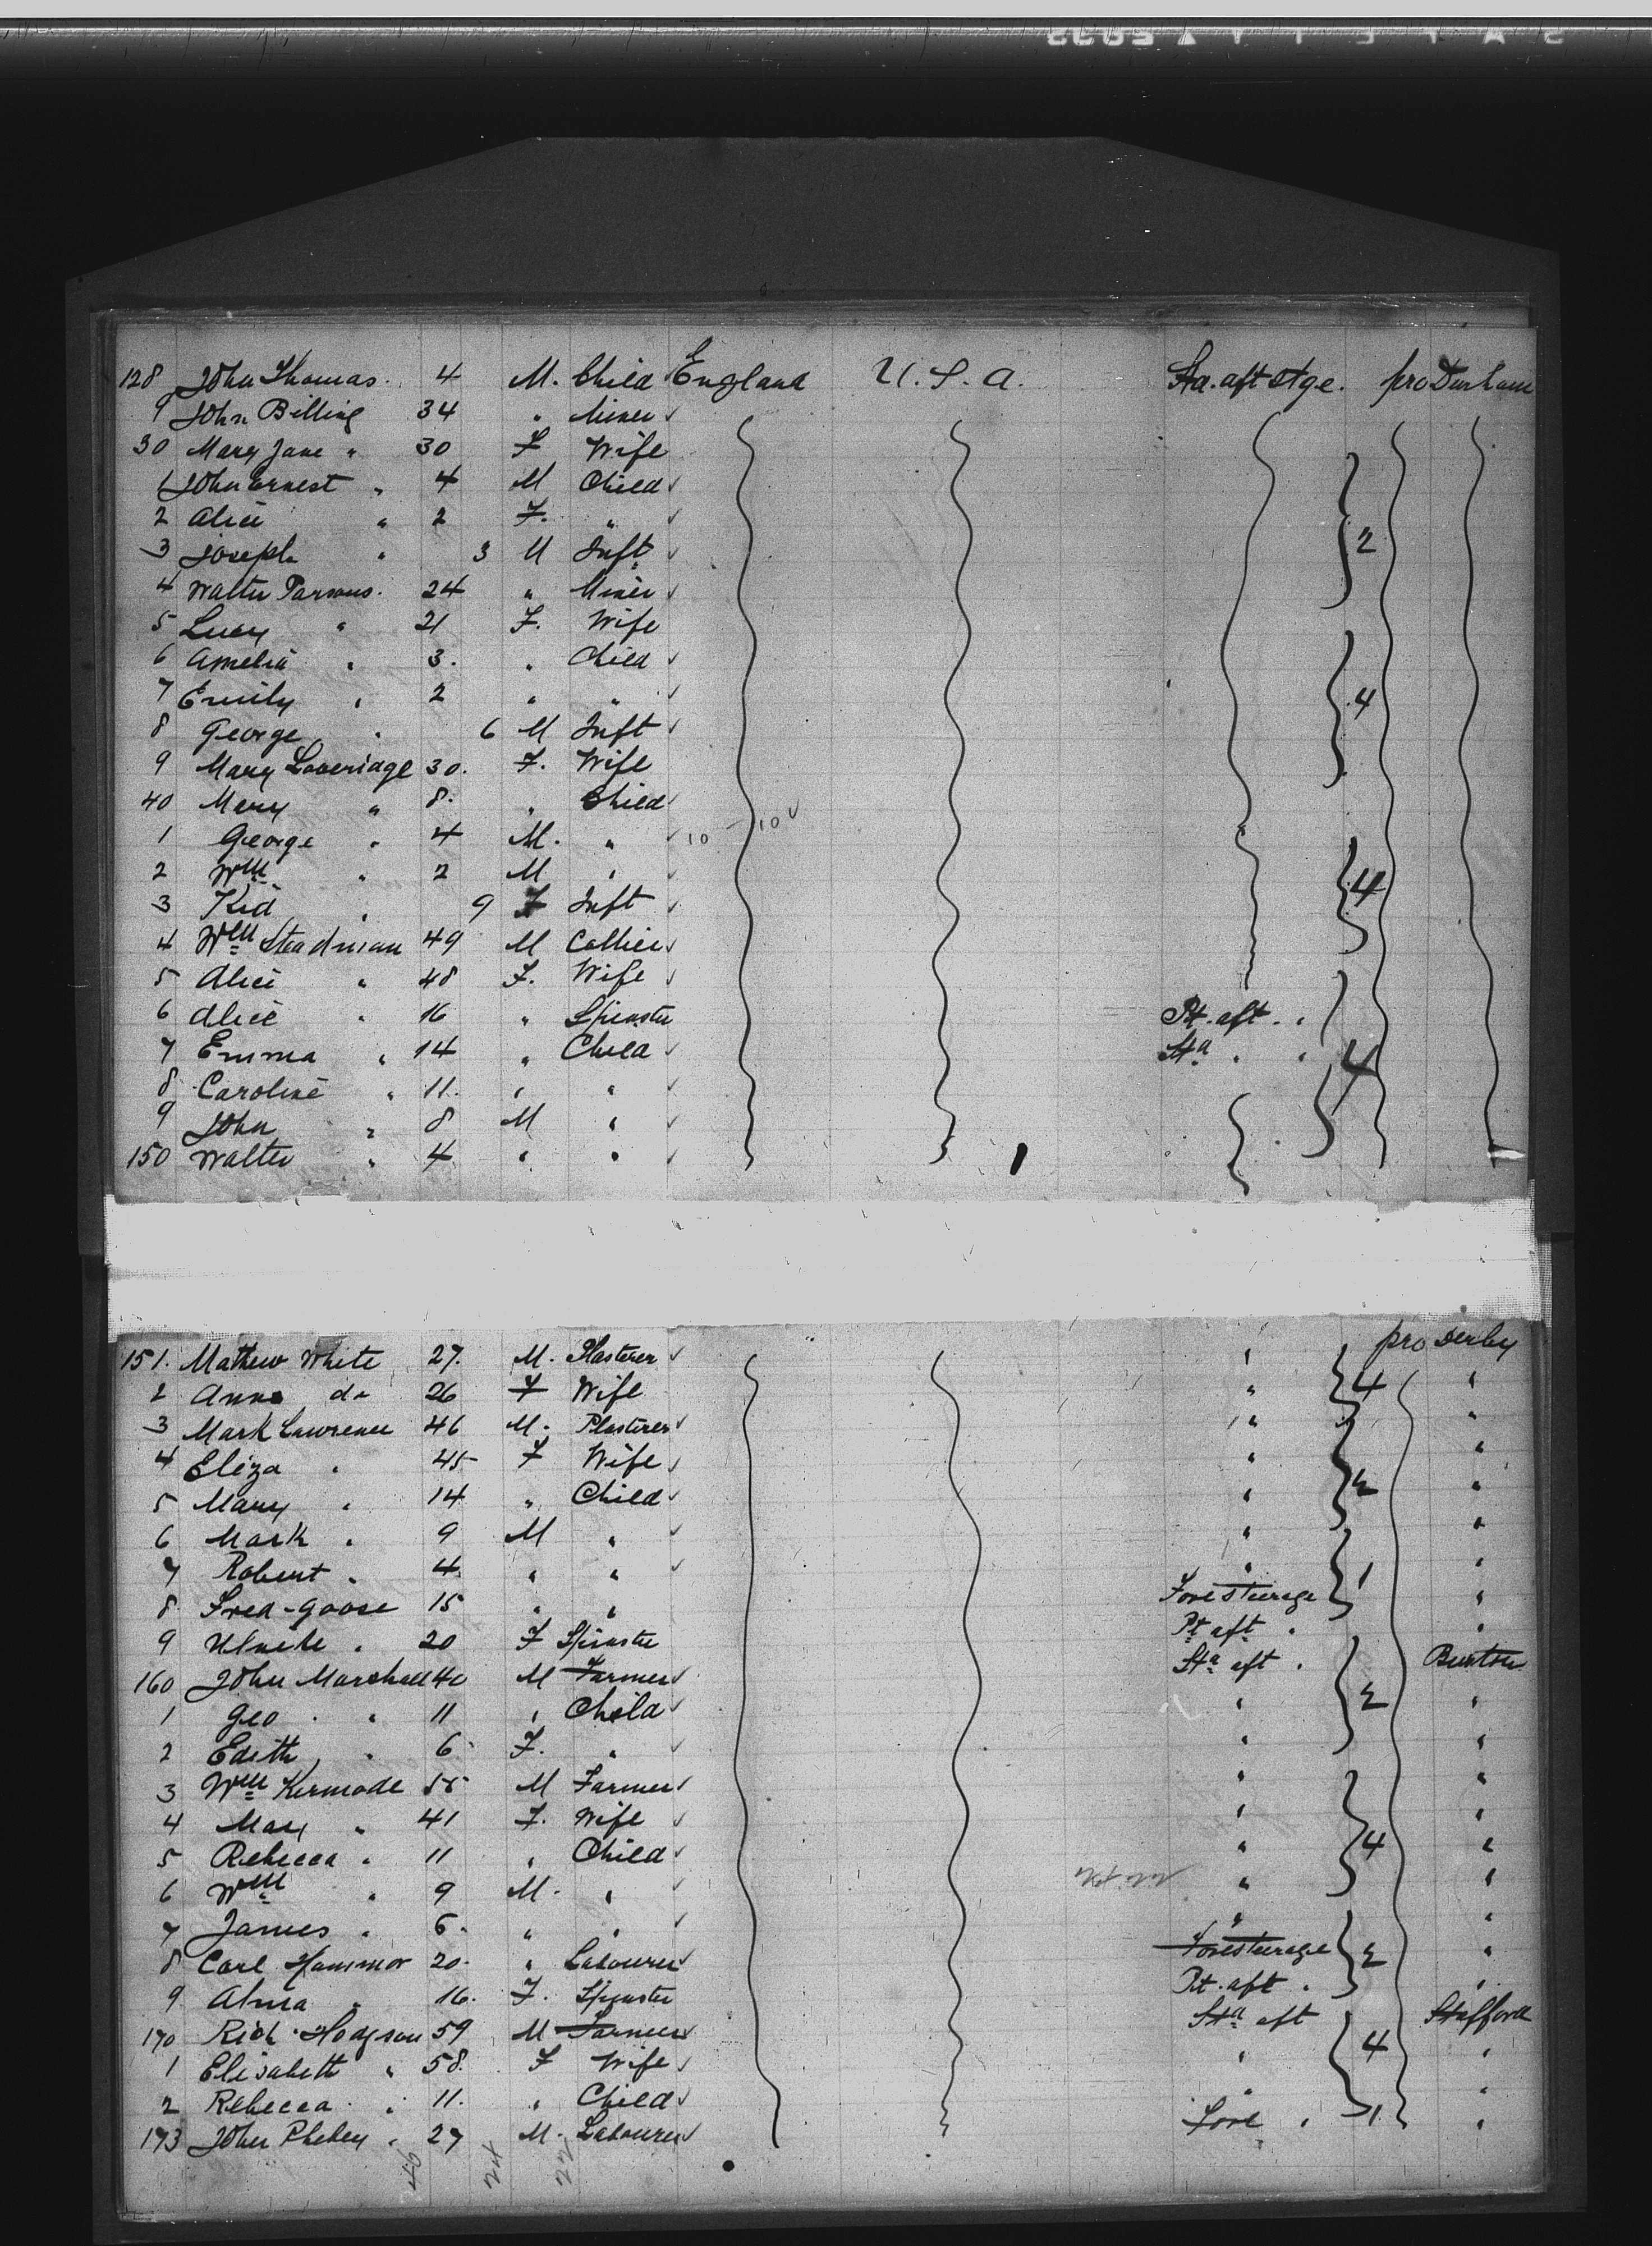 128 John Thomas. 4 M. Child England U.S.A. Sta. aft stge. pro Durham
9 John Billing 34 " Miner
30 Mary Jane " 30 F Wife
1 John Ernest " 4 M Child
2 Alice " 2 F. "
3 Joseph " 3 M Inft 2
4 Walter Parsons. 24 " Miner
5 Lucy " 21 F. Wife
6 Amelia " 3. " Child
7 Emily " 2 " " 4
8 George " 6 M Inft
9 Mary Loveridge 30. F. Wife
40 Mary " 8. " Child
1 George " 4 M. " 10 10
2 Wm " 2 M "
3 Kid " 9 F Inft 4
4 Wm Steadman 49 M Collier
5 Alice " 48 F. Wife
6 Alice " 16 " Spinster Pt. aft. "
7 Emma " 14 " Child Sta " " 4
8 Caroline " 11. " "
9 John " 8 M "
150 Walter " 4 " "
151. Mathew White 27. M. Plasterer " pro Derby
2 Anna do 26 F Wife " 4 "
3 Mark Lawrence 46 M. Plasterer " "
4 Eliza " 45 F Wife " "
5 Mary " 14 " Child " 2 "
6 Mark " 9 M " " "
7 Robert " 4 " " " 1 "
8 Fred-Goose 15 " " Foresteerage "
9 " 20 F Spinster Pt aft " "
160 John Marshall 40 M Farmer Sta aft " Burton
1 Geo. " 11 " Child " 2 "
2 Edith " 6 F. " " "
3 Wm Kermode 55 M Farmer " "
4 Mary " 41 F. Wife " "
5 Rebecca " 11 " Child " 4 "
6 Wm " 9 M. " " "
7 James " 6. " " " "
8 Carl Hammor 20. " Labourer Foresteerage 2 "
9 Alma " 16. F. Spinster Pt. aft " "
170 Rich. Hodgson 59 M Farmer Sta aft Stafford
1 Elisabeth " 58. F Wife " 4 "
2 Rebecca " 11. " Child " "
173 John Pheley " 27 M. Labourer Fore " 1 "
46 24 22